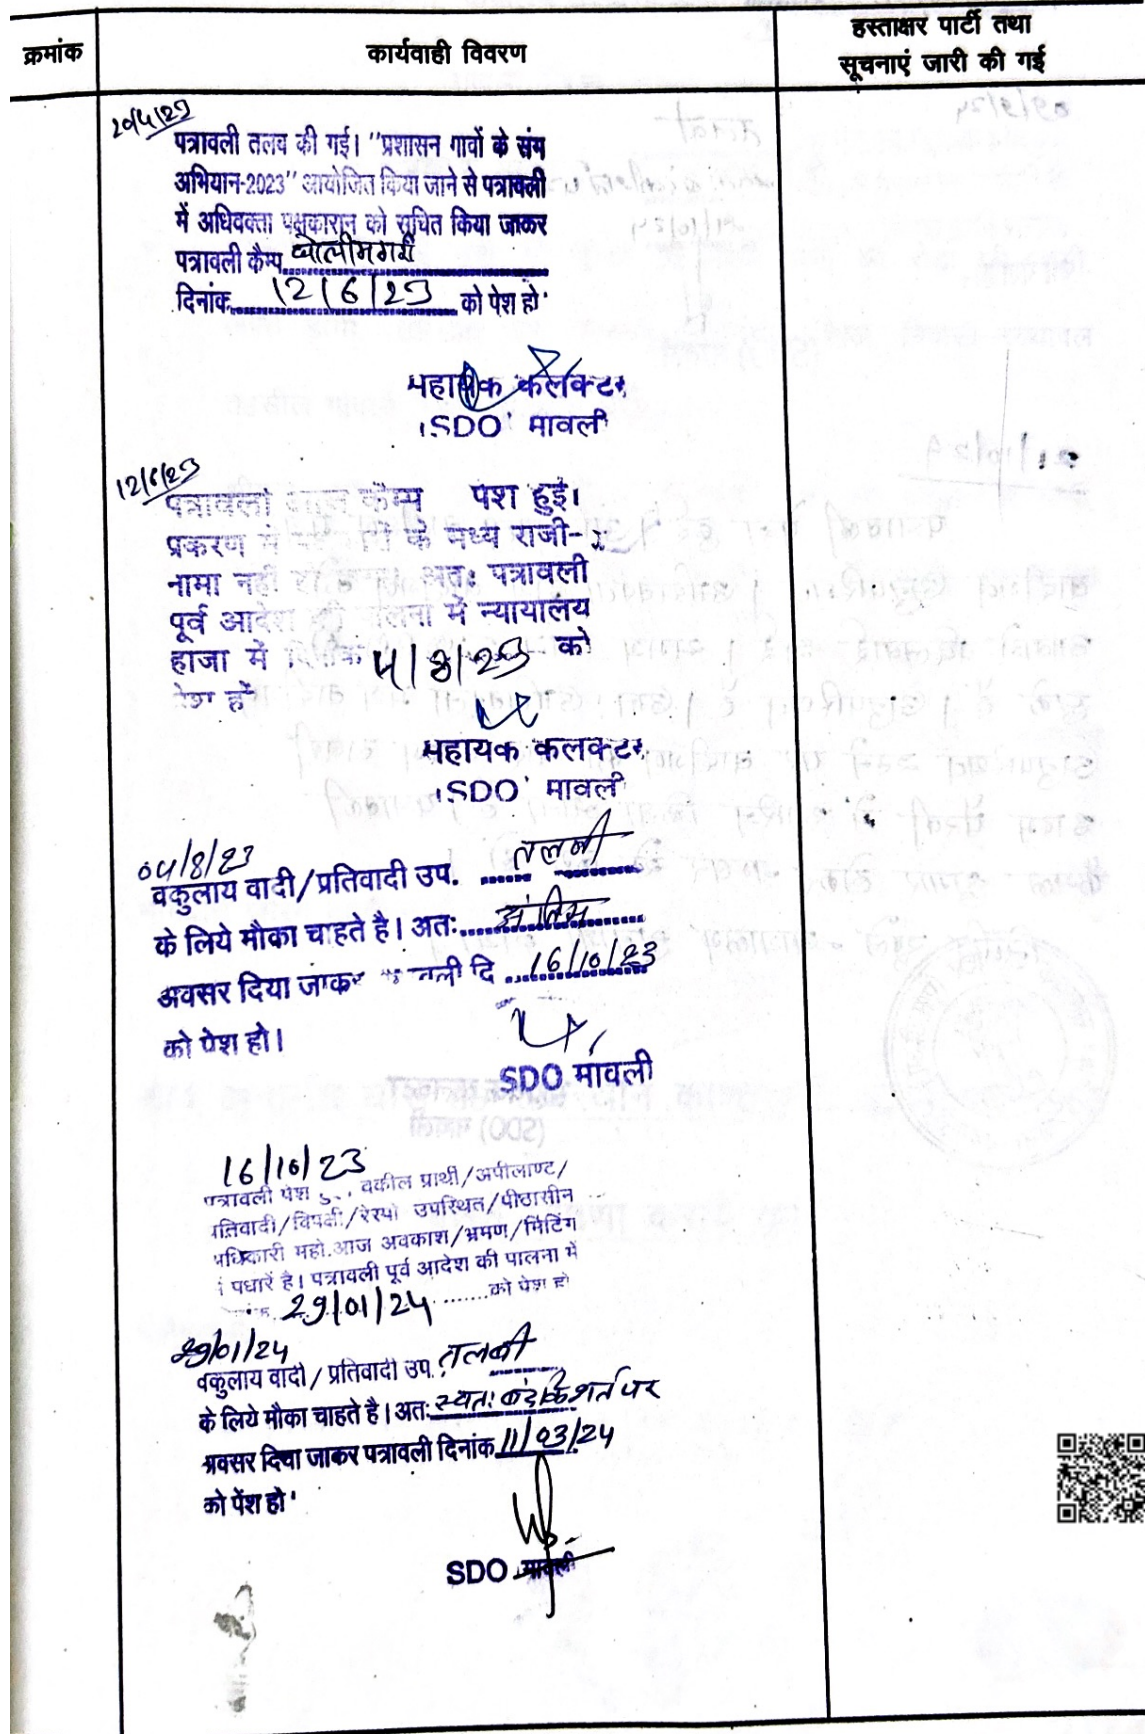 क्रमांक
कार्यवाही विवरण
हस्ताक्षर पार्टी तथा
सूचनाएं जारी की गई
20/4/23
पत्रावली तलब की गई। "प्रशासन गावों के संग
अभियान-2023" आयोजित किया जाने से पत्रावली
में अधिवक्ता पक्षकारान को सूचित किया जाकर
पत्रावली कैम्प
दिनांक 12/6/23 को पेश हो
सहायक कलक्टर
SDO मावली
12/6/23
पत्रावली कैम्प पेश हुई।
प्रकरण में के मध्य राजी-
नामा नही अतः पत्रावली
पूर्व आदेश की पालना में न्यायालय
हाजा में दिनांक 4/8/23 को
पेश हों
सहायक कलक्टर
SDO मावली
04/8/23
वकुलाय वादी/प्रतिवादी उप. तलबी
के लिये मौका चाहते है। अतः अंतिम
अवसर दिया जाकर दि 16/10/23
को पेश हो।
SDO मावली
16/10/23
पत्रावली पेश वकील प्रार्थी/अपीलाण्ट/
प्रतिवादी/विपक्षी/रेस्पो उपस्थित/पीठासीन
अधिकारी महो.आज अवकाश/भ्रमण/मिटिंग
पधारें है। पत्रावली पूर्व आदेश की पालना में
29/01/24 को पेश हो
29/01/24
वकुलाय वादी/प्रतिवादी उप. तलबी
के लिये मौका चाहते है। अतः स्वतः बंद कि शर्त पर
अवसर दिया जाकर पत्रावली दिनांक 11/03/24
को पेंश हो
SDO मावली